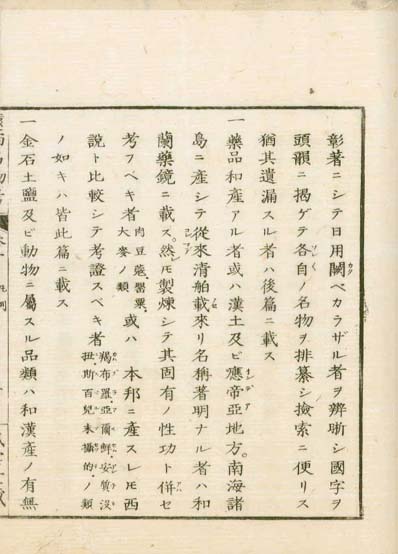 彰著ニシテ日用闕ベカラザル者ヲ辨晰シ國字ヲ
頭韻ニ揭ゲテ各自ノ名物ヲ排纂シ撿索ニ便リス
猶其遺漏スル者ハ後篇ニ載ス
一藥品和産アル者或ハ漢土及ビ應帝亞地方。南海諸
島ニ産シテ從來清舶載來リ名稱著明ナル者ハ和
蘭藥鏡ニ載ス。然レモ製煉シテ其固有ノ性功ト併セ
考フベキ者 肉豆蔲罌粟大麥ノ類 或ハ 本邦ニ産スレモ西
說ト比較シテ考證スベキ者 羯布羅亞爾鮮安質沒扭斯百兒末攝的ノ類
ノ如キハ皆此篇ニ載ス
一金石土鹽及ビ動物ニ屬スル品類ハ和漢産ノ有無